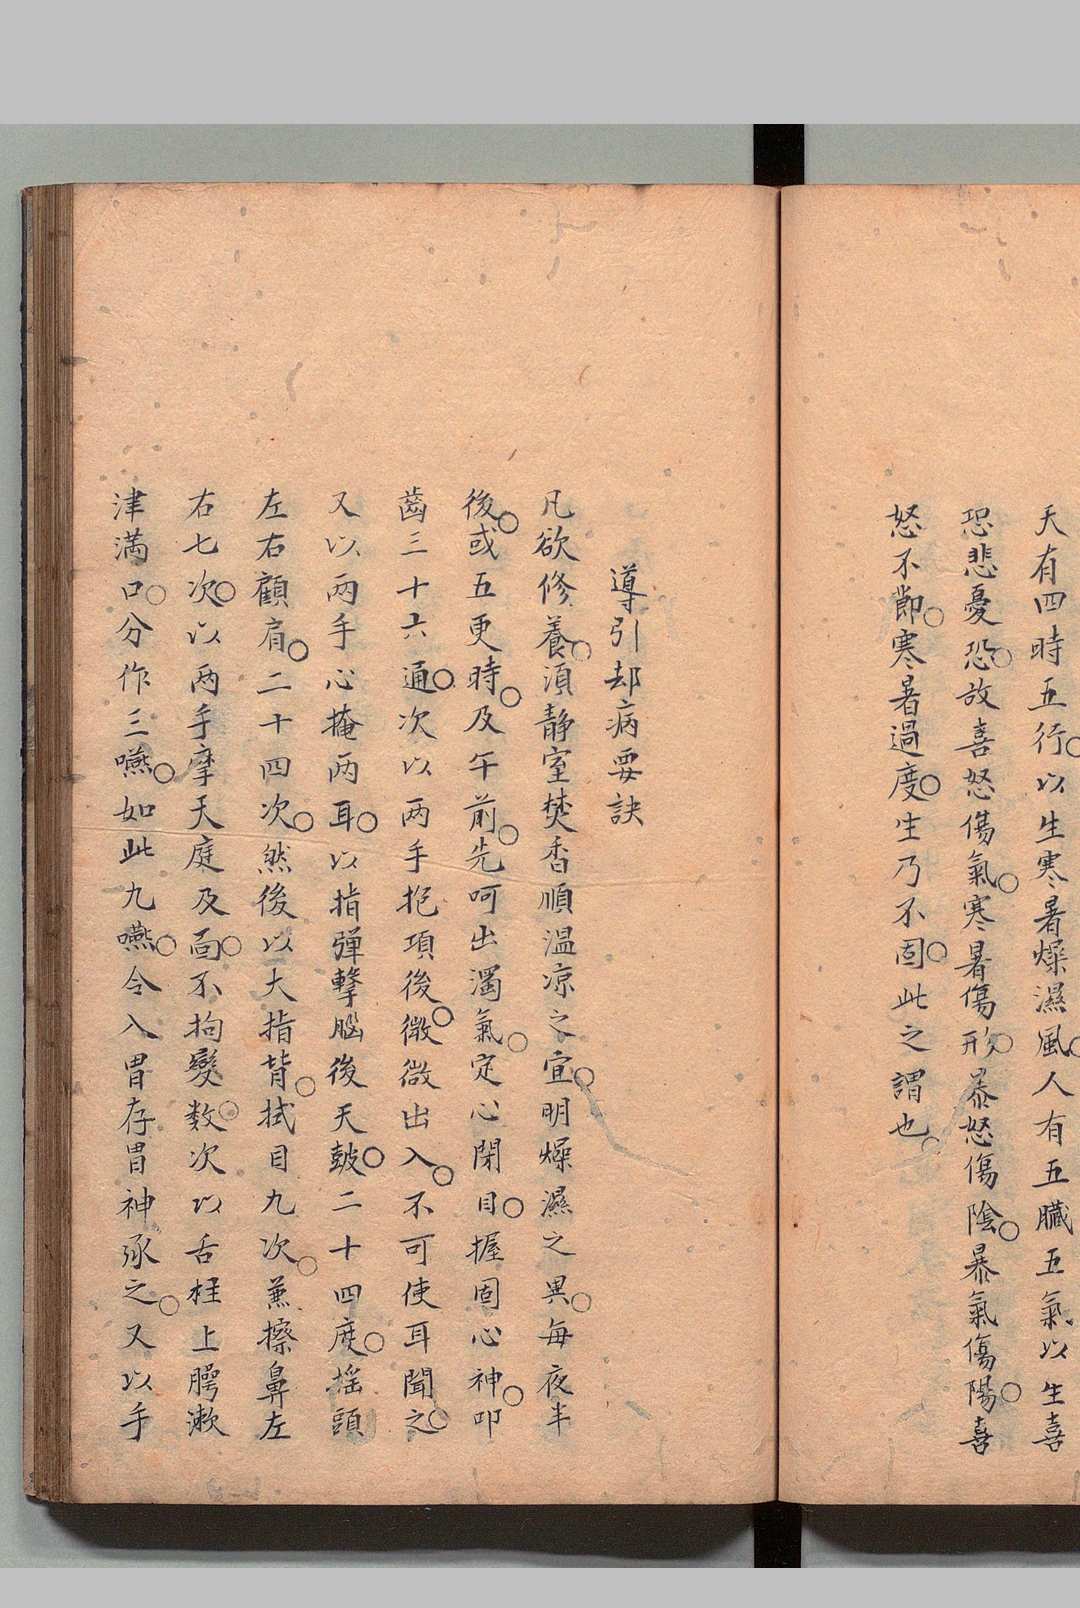 天有四時五行以生寒暑燥濕風人有五臟五氣以生喜
恐悲憂恐故喜怒傷氣寒暑傷形暴怒傷陰暴氣傷陽喜
怒不節寒暑過度生乃不固此之謂也
導引却病要訣
凡欲修養須靜室焚香順溫凉之宜明燥濕之異每夜半
後或五更時及午前先呵出濁氣定心閉目握固心神叩
齒三十六通次以兩手抱項後微微出入不可使耳聞之
又以兩手心掩兩耳以指彈擊腦後天皷二十四度揺頭
左右顧肩二十四次然後以大指背拭目九次兼擦鼻左
右七次以兩手摩天庭及面不拘變数次以舌柱上腭漱
津滿口分作三嚥如此九嚥令入胃存胃神承之又以手